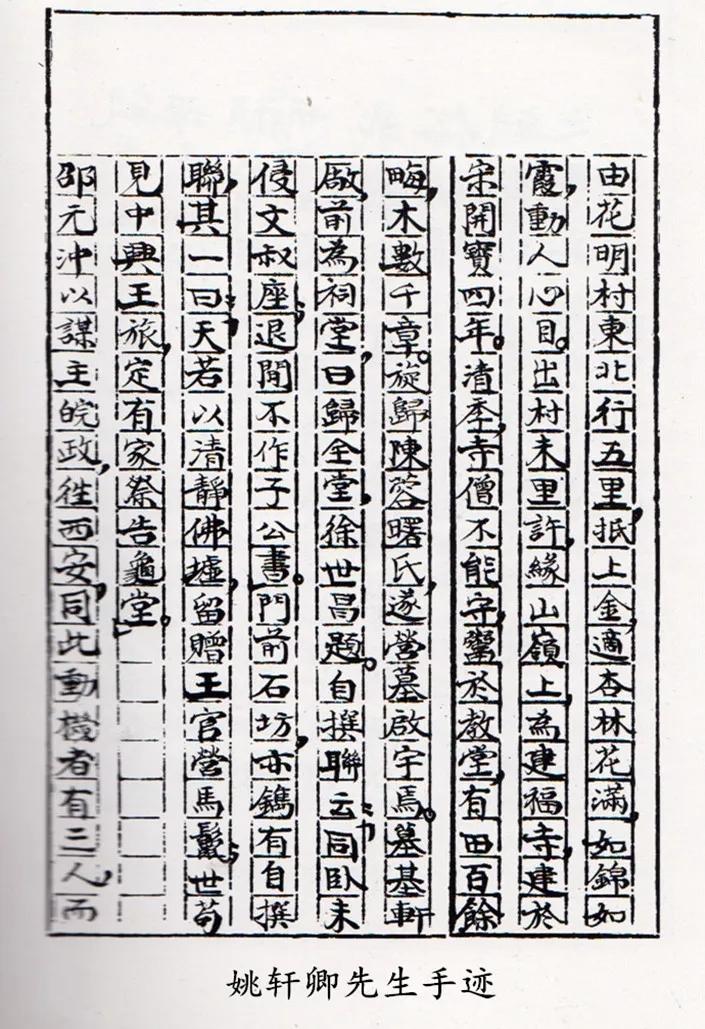 由花明村東北行五里，抵上金，適杏林花滿，如錦如
霞，動人心目。出村未里許，緣山嶺上，為建福寺，建於
宋開寶四年。清季，寺僧不能守，鬻於教堂，有田百餘
畮，木數千章。旋歸陳蓉曙氏，遂營墓啟宇焉。墓基軒
敞，前為祠堂，曰歸全堂，徐世昌題。自撰聯云：「同卧未
侵文叔座；退閒不作子公書。門前石坊，亦鐫有自撰
聯，其一曰：「天若以清靜佛墟，留贈王官營馬鬣；世苟
見中興王旅，定有家祭告龜堂。」
邵元沖以謀主皖政，往西安，同此動機者有三人，而
姚轩卿先生手迹